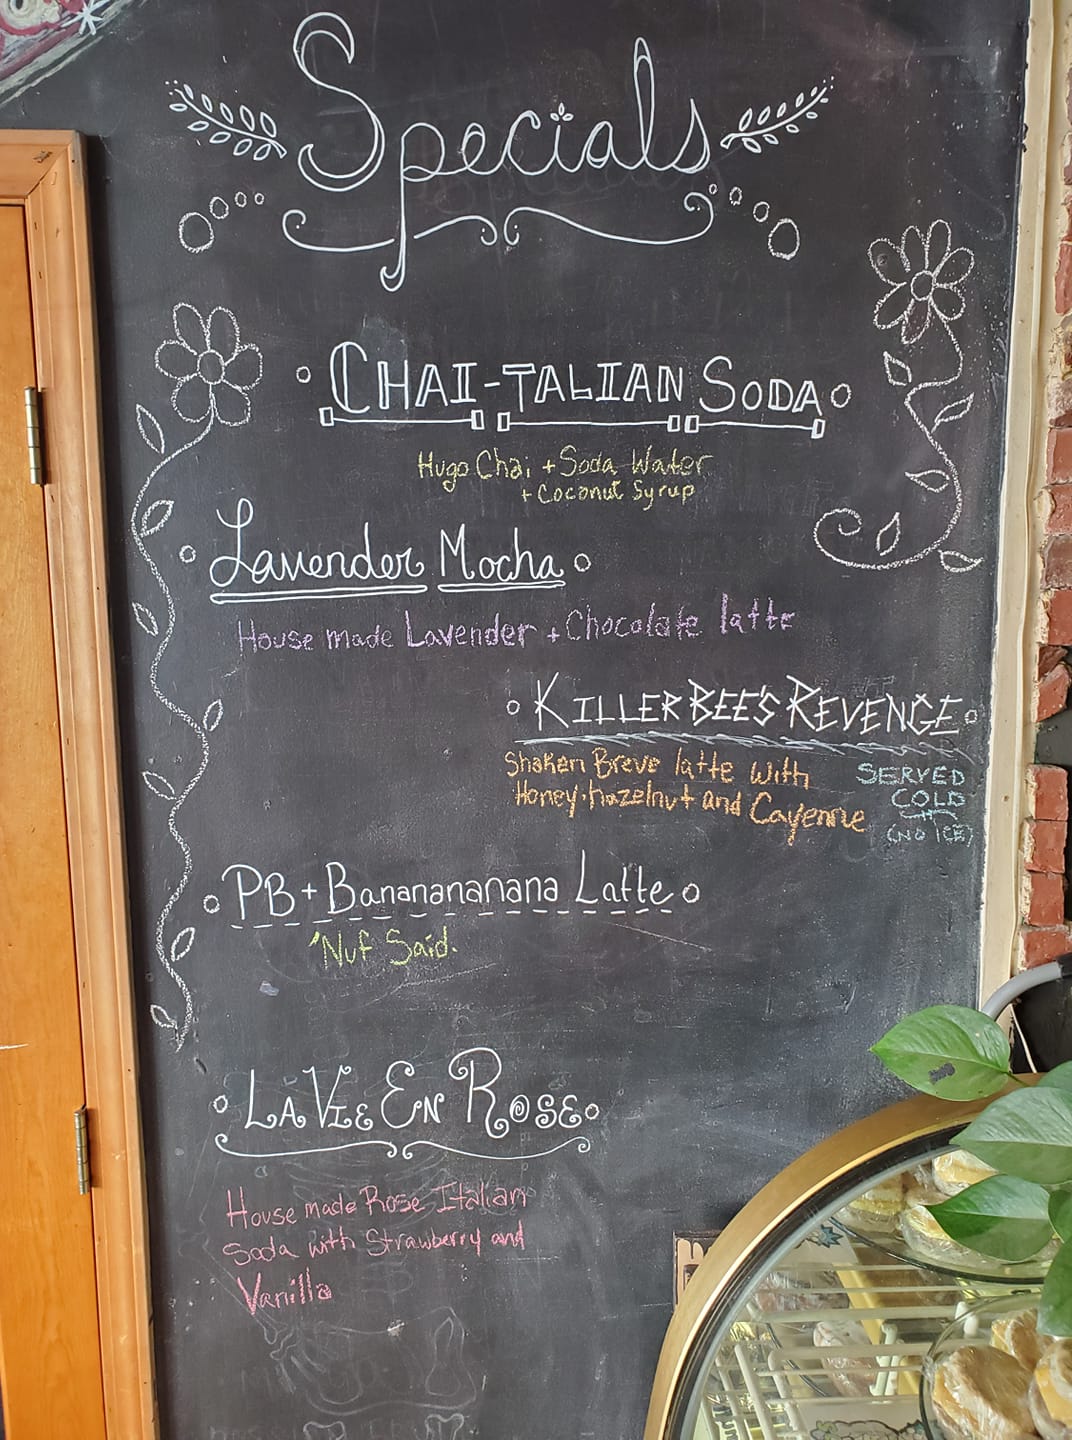 Specials
CHAI-TALIAN SODA
Hugo Chai + Soda Water
+ Coconut Syrup
Lavender Mocha
House made Lavender + Chocolate latte
KILLER BEE'S REVENGE
Shaken Breve latte with
Honey, hazelnut and Cayenne
SERVED
COLD
(NO ICE)
PB + Bananananana Latte
'Nuf Said.
LA VIE EN ROSE
House made Rose Italian
Soda with Strawberry and
Vanilla